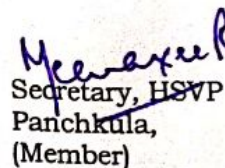 Secretary, HSVP
Panchkula,
(Member)